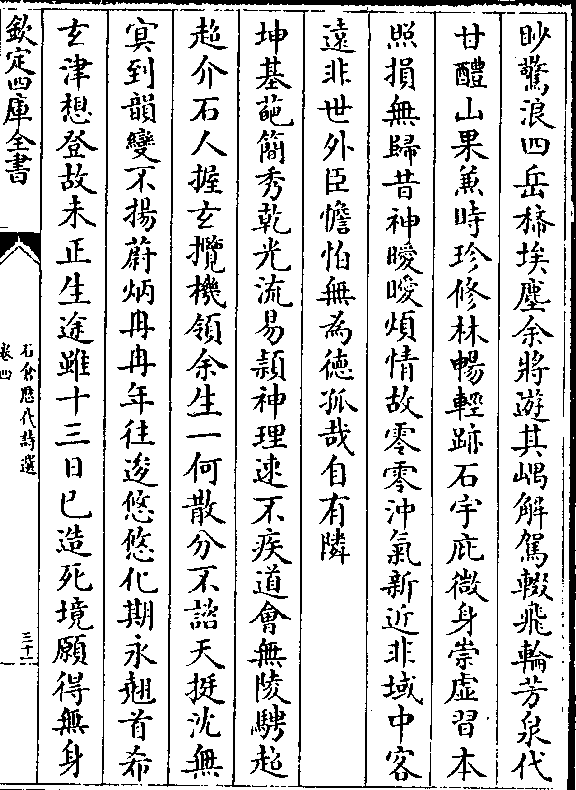 眇驚浪四岳稊埃塵余將遊其嵎解駕輟飛輪芳泉代
甘醴山果兼時珍修林暢輕跡石宇庇微身崇虚習本
照損無歸昔神曖曖煩情故零零沖氣新近非域中客
遠非世外臣憺怕無為德孤哉自有隣
坤基葩簡秀乾光流易頴神理速不疾道會無陵騁超
超介石人握玄攬機領余生一何散分不諮天挺沈無
寘到韻變不揚蔚炳冉冉年往逡悠悠化期永翹首希
玄津想登故未正生途雖十三日已造死境願得無身
欽定四庫全書
石倉歷代詩選
卷四
三十一